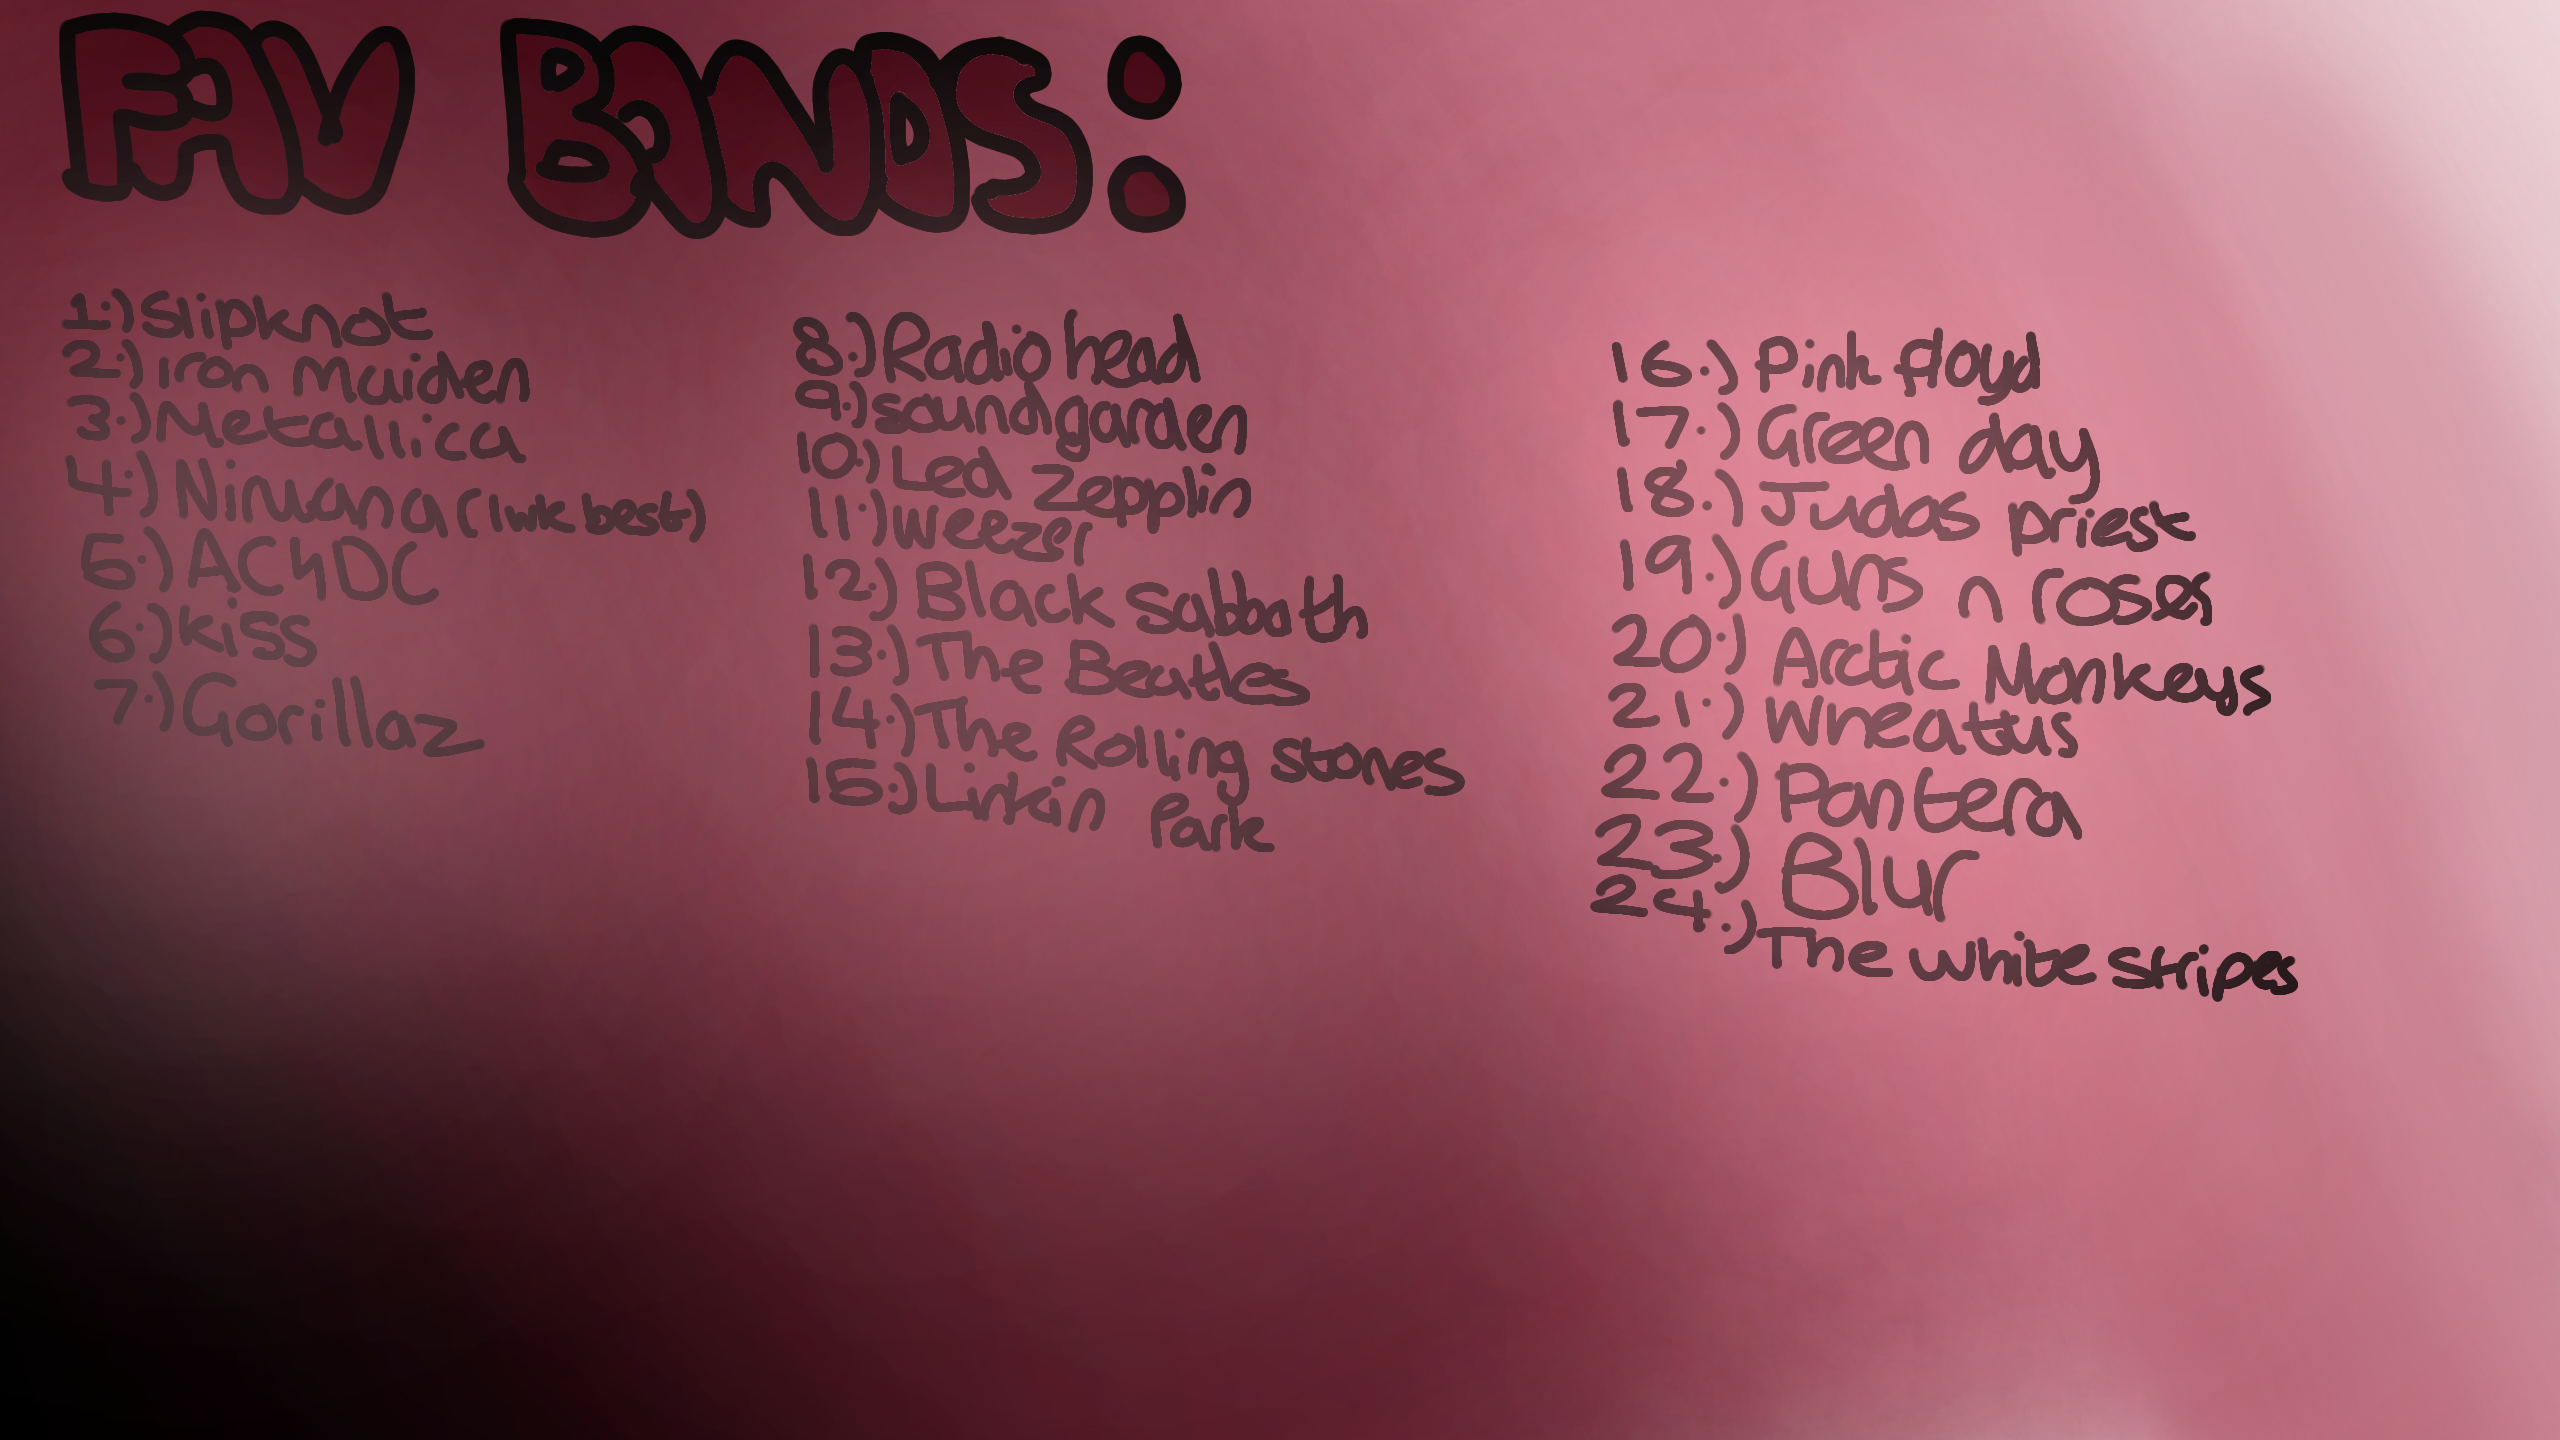 FAV BANDS:
1.) Slipknot
2.) iron Maiden
3.) Metallica
4.) Nirvana (lwk best)
5.) ACϟDC
6.) kiss
7.) Gorillaz
8.) Radiohead
9.) soundgarden
10.) Led Zepplin
11.) weezer
12.) Black Sabbath
13.) The Beatles
14.) The Rolling stones
15.) Linkin Park
16.) Pink floyd
17.) Green day
18.) Judas priest
19.) Guns n roses
20.) Arctic Monkeys
21.) Wheatus
22.) Pantera
23.) Blur
24.) The white stripes